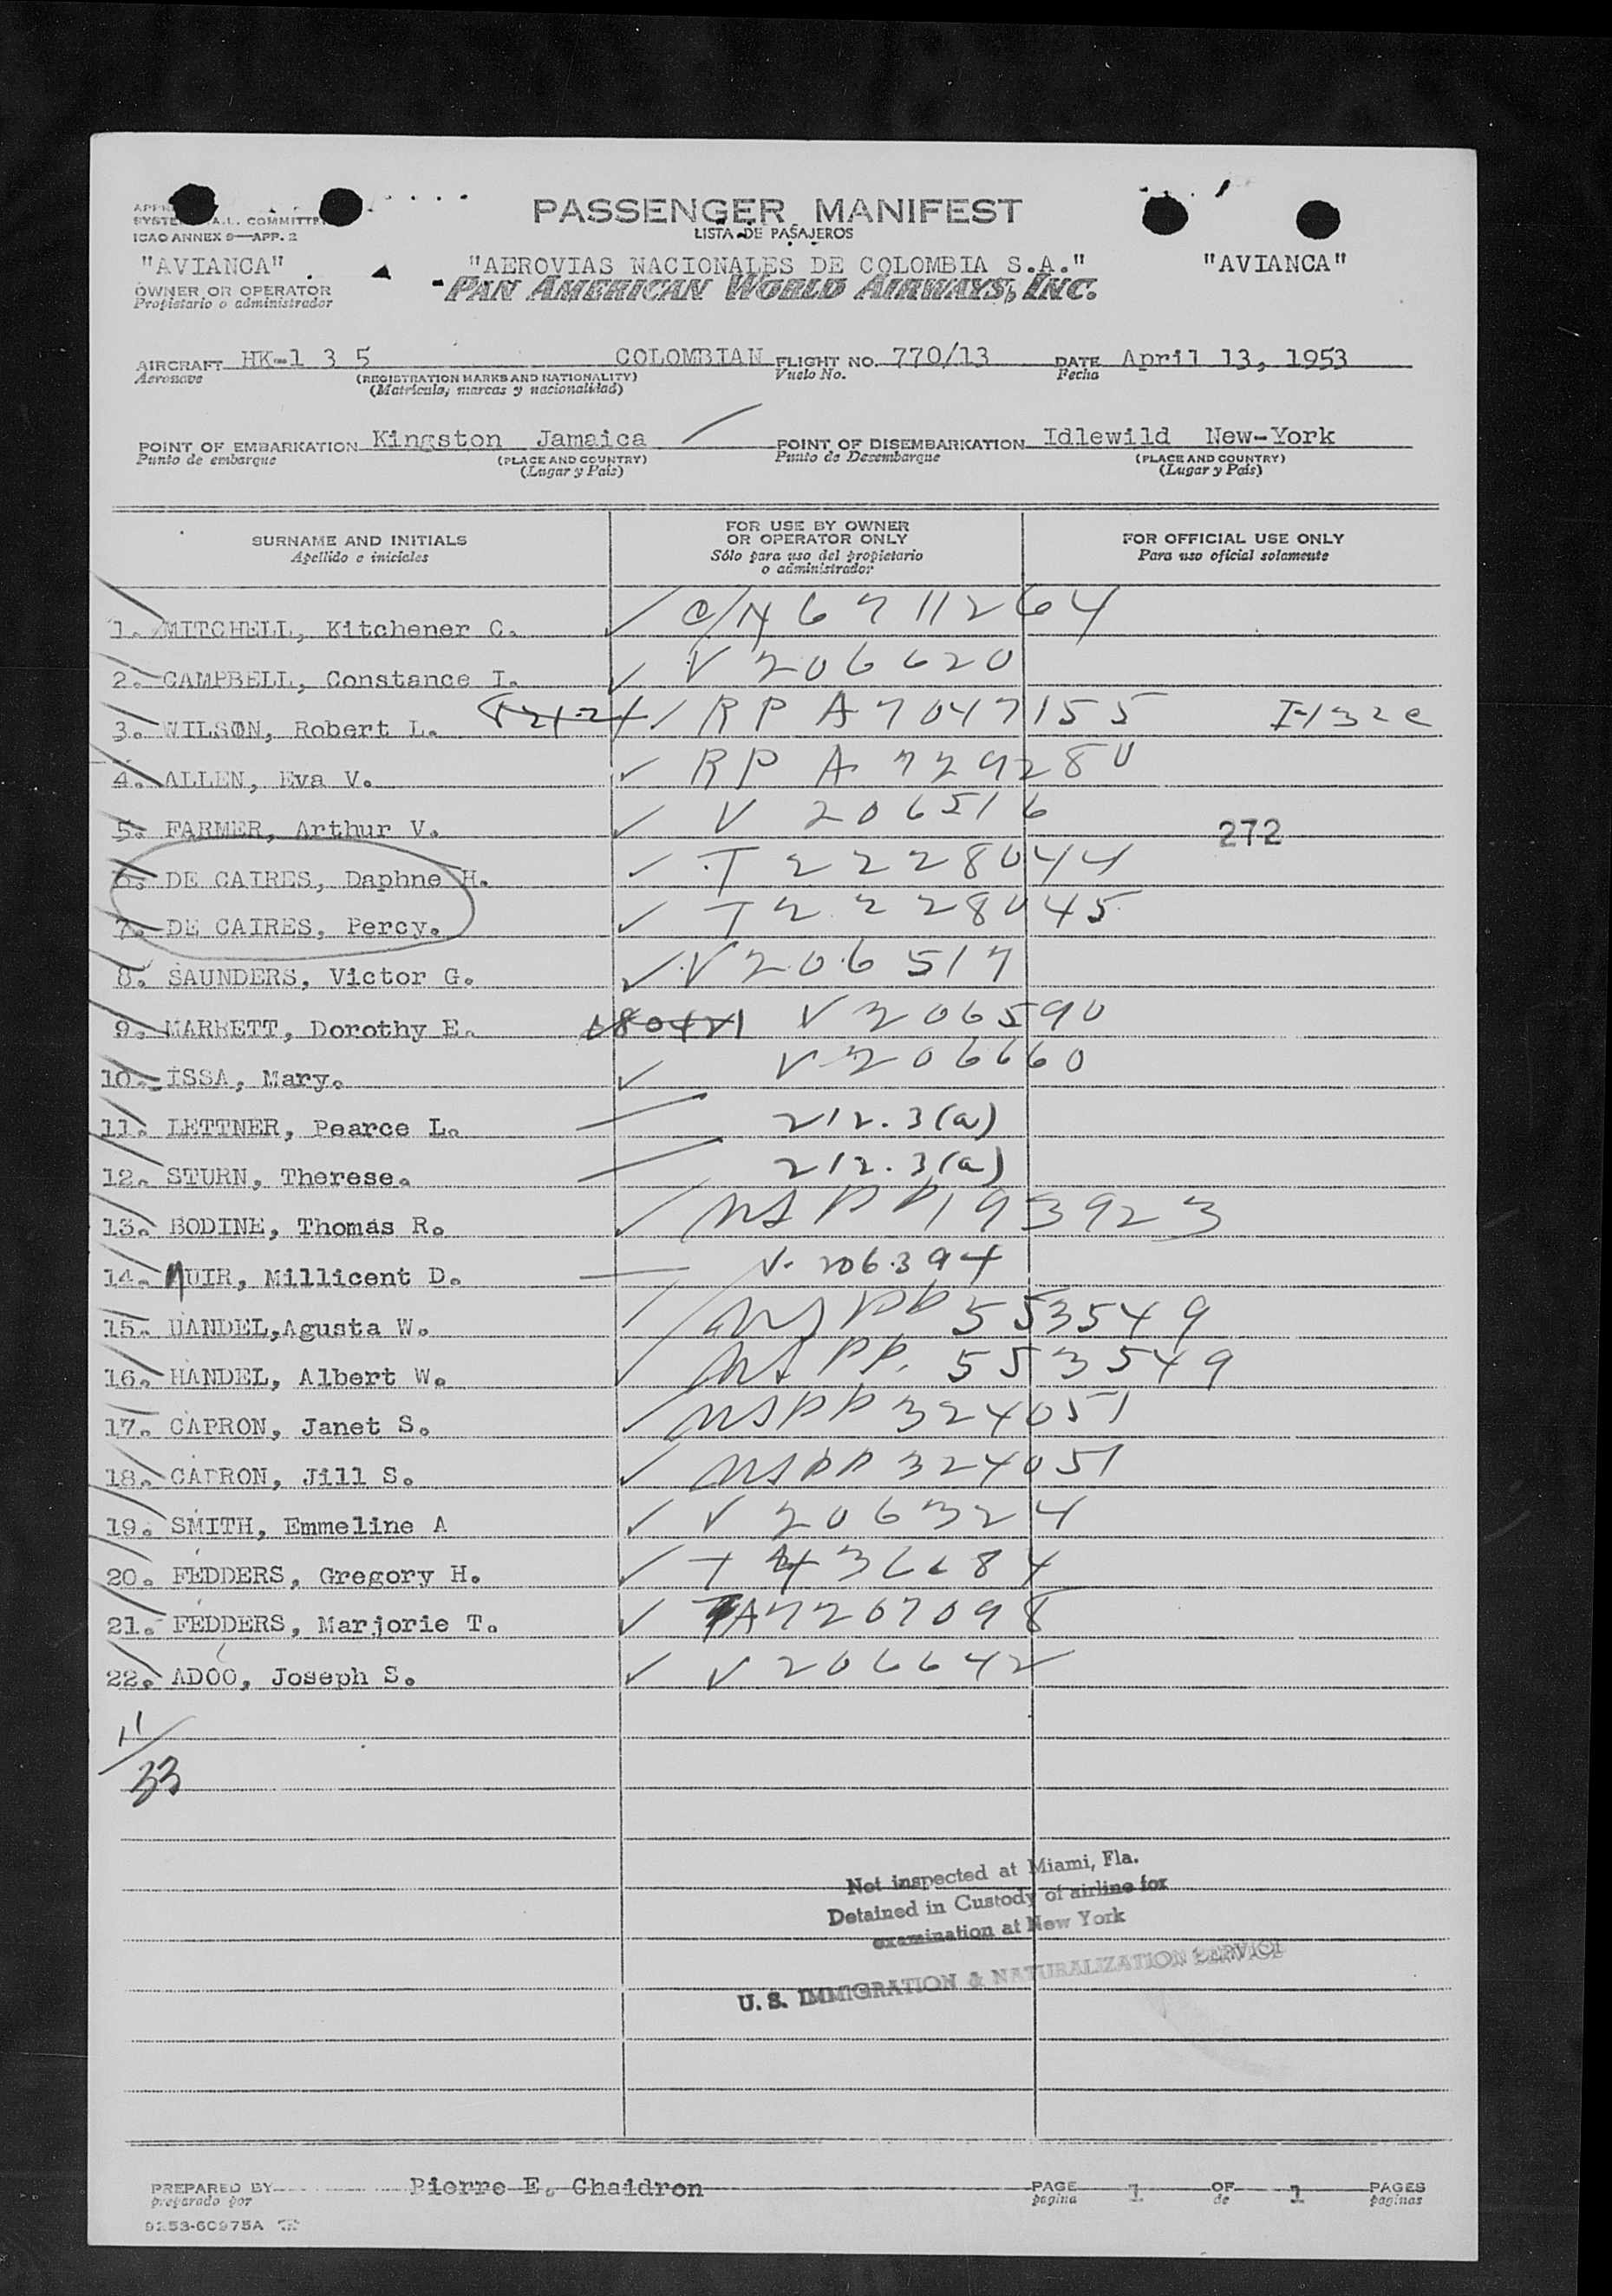 PASSENGER MANIFEST
SYSTE A.L. COMMITTE
LISTA DE PASAJEROS
ICAO ANNEX 9—APP. 2
"AVIANCA" "AEROVIAS NACIONALES DE COLOMBIA S.A." "AVIANCA"
OWNER OR OPERATOR PAN AMERICAN WORLD AIRWAYS, INC.
Propietario o administrador
AIRCRAFT HK-1 3 5 COLOMBIAN FLIGHT NO. 770/13 DATE April 13, 1953
Aeronave (REGISTRATION MARKS AND NATIONALITY) Vuelo No. Fecha
(Matricula, marcas y nacionalidad)
POINT OF EMBARKATION Kingston Jamaica POINT OF DISEMBARKATION Idlewild New-York
Punto de embarque (PLACE AND COUNTRY) Punto de Desembarque (PLACE AND COUNTRY)
(Lugar y País) (Lugar y País)
SURNAME AND INITIALS FOR USE BY OWNER OR OPERATOR ONLY FOR OFFICIAL USE ONLY
Apellido e iniciales Sólo para uso del propietario o administrador Para uso oficial solamente
1. MITCHELL, Kitchener C. C/N 6711264
2. CAMPBELL, Constance I. V 206620
3. WILSON, Robert L. RP A7047155 I-132c
4. ALLEN, Eva V. RP A 729280
5. FARMER, Arthur V. V 206516
272
6. DE CAIRES, Daphne H. T 2228044
7. DE CAIRES, Percy. T 2228045
8. SAUNDERS, Victor G. V 206517
9. MARBETT, Dorothy E. V 206590
10. ISSA, Mary. V 206660
11. LETTNER, Pearce L. 212.3(a)
12. STURN, Therese. 212.3(a)
13. BODINE, Thomas R. USPP 193923
14. MUIR, Millicent D. V. 206394
15. HANDEL,Agusta W. USPP 553549
16. HANDEL, Albert W. USPP. 553549
17. CAPRON, Janet S. USPP 324051
18. CAPRON, Jill S. USPP 324051
19. SMITH, Emmeline A V 206324
20. FEDDERS, Gregory H. T 436684
21. FEDDERS, Marjorie T. A7267098
22. ADOO, Joseph S. V 206642
11/33
Not inspected at Miami, Fla.
Detained in Custody of airline for
examination at New York
U. S. IMMIGRATION & NATURALIZATION SERVICE
PREPARED BY Pierre E. Chaidron PAGE 1 OF 1 PAGES
preparado por pagina de paginas
9253-6C975A